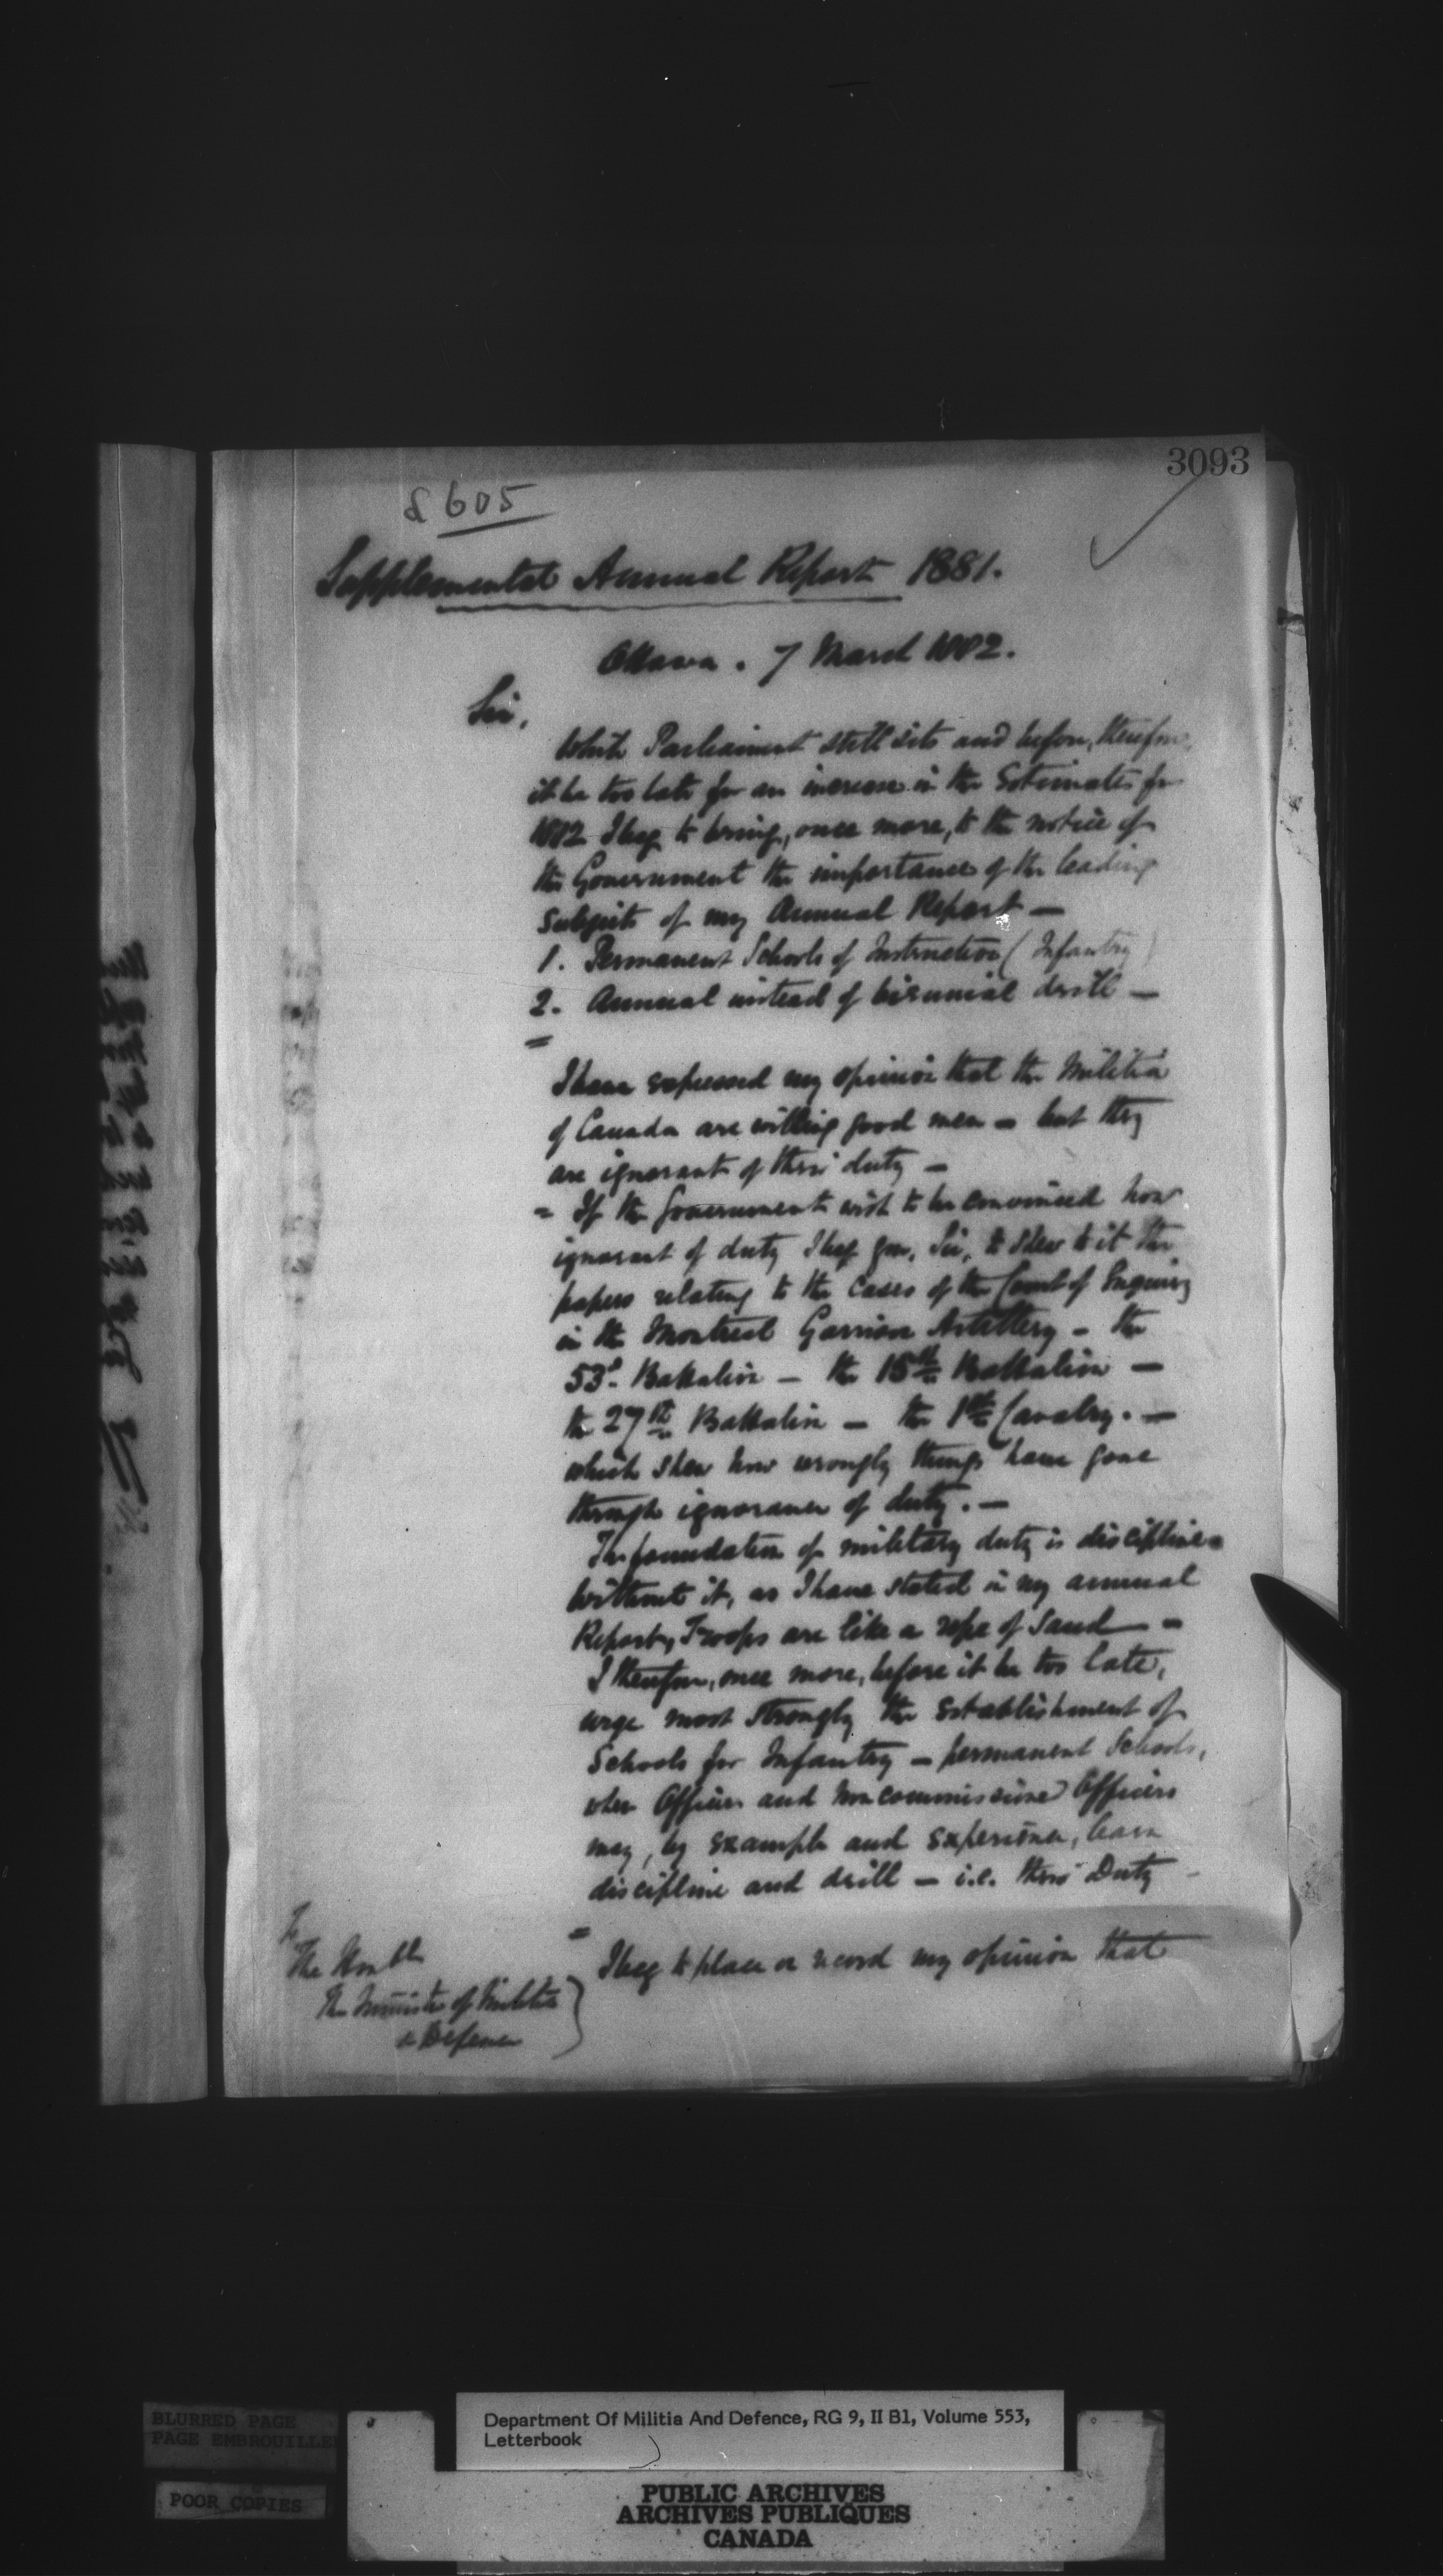 3093
8605
Supplemental Annual Report 1881.
Ottawa. 7 March 1882.
Sir,
While Parliament still sits and before, therefore,
it be too late for an increase in the Estimates for
1882 I beg to bring, once more, to the notice of
the Government the importance of the leading
subjects of my Annual Report —
1. Permanent Schools of Instruction (Infantry)
2. Annual instead of biennial drill —
=
I have expressed my opinion that the Militia
of Canada are willing good men — but they
are ignorant of their duty —
= If the Government wish to be convinced how
ignorant of duty I beg you, Sir, to shew to it the
papers relating to the cases of the Court of Enquiry
in the Montreal Garrison Artillery — the
53d. Battalion — the 15th Battalion —
the 27th Battalion — the 1st Cavalry. —
which shew how wrongly things have gone
through ignorance of duty. —
The foundation of military duty is discipline =
Without it, as I have stated in my annual
Report, Troops are like a rope of Sand — =
I therefore, once more, before it be too late,
urge most strongly the establishment of
Schools for Infantry — permanent Schools,
where Officers and Non commissioned Officers
may, by example and experience, learn
discipline and drill — i.e. their Duty —
=
I beg to place on record my opinion that
To
The Honble
The Minister of Militia
& Defence
BLURRED PAGE
PAGE EMBROUILLEE
POOR COPIES
Department Of Militia And Defence, RG 9, II B1, Volume 553,
Letterbook
PUBLIC ARCHIVES
ARCHIVES PUBLIQUES
CANADA